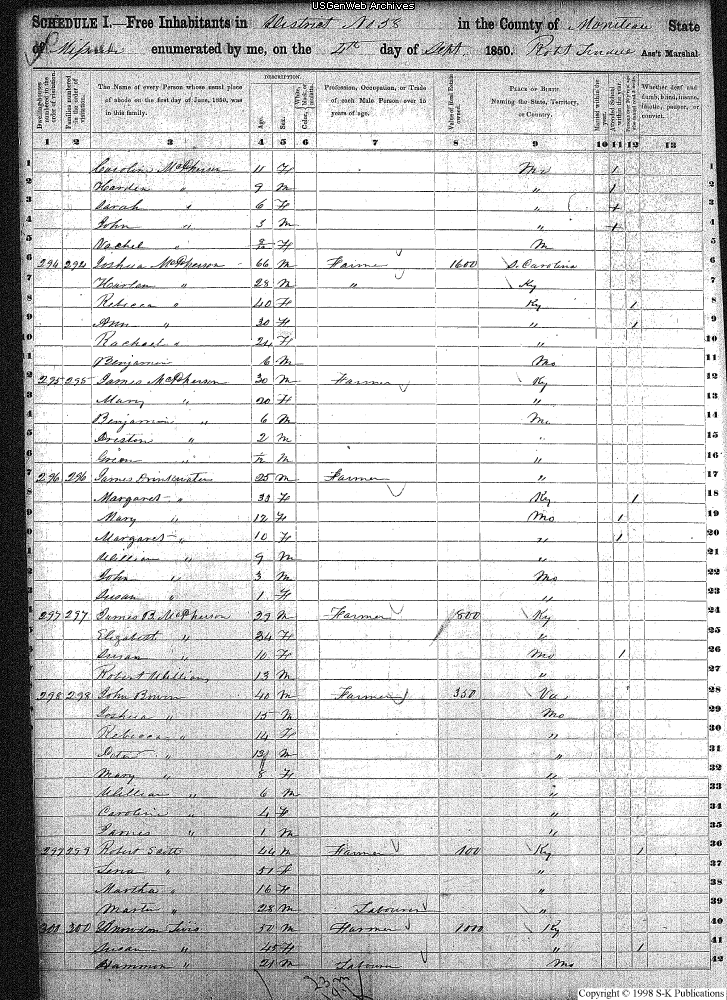 USGenWeb Archives
SCHEDULE I.—Free Inhabitants in District No 58 in the County of Moniteau State
of enumerated by me, on the day of Sept 1850. Robt Ass't Marshal.
Dwelling-houses numbered in the order of visitation.
Families numbered in the order of visitation.
The Name of every Person whose usual place of abode on the first day of June, 1850, was in this family.
DESCRIPTION.
Age.
Sex.
Color, White, black, or mulatto.
Profession, Occupation, or Trade of each Male Person over 15 years of age.
Value of Real Estate owned.
PLACE OF BIRTH. Naming the State, Territory, or Country.
Married within the year.
Attended School within the year.
Whether deaf and dumb, blind, insane, idiotic, pauper, or convict.
1 2 3 4 5 6 7 8 9 10 11 12 13
1 Caroline McPherson 11 F Mo 1 1
2 Harden " 9 M " 1 2
3 Sarah " 6 F " 3
4 John " 3 M " 4
5 Vachel " F M 5
6 294 294 Joshua McPherson 66 M Farmer 1600 S. Carolina 6
7 Harlan " 28 M " Ky 7
8 Rebecca " 40 F Ky 1 8
9 Ann " 30 F " 1 9
10 Rachael " 24 F " 10
11 Benjamin 6 M Mo 11
12 295 295 James McPherson 30 M Farmer Ky 12
13 Mary " 20 F " 13
14 Benjamin " 6 M Mo 14
15 " 2 M " 15
16 Green " M " 16
17 296 296 James Drinkwater 25 M Farmer " 17
18 Margaret " 33 F Ky 1 18
19 Mary " 12 F Mo 1 19
20 Margaret " 10 F " 1 20
21 William " 9 M " 21
22 John " 3 M Mo 22
23 Susan " 1 F " 23
24 297 297 James B. McPherson 39 M Farmer 800 Ky 24
25 Elizabeth " 34 F " 25
26 Susan " 10 F Mo 1 26
27 Robert Williams 13 M " 27
28 298 298 John Bowen 40 M Farmer 350 Va 28
29 Joshua " 15 M Mo 29
30 Rebecca " 14 F " 30
31 Peter " M " 31
32 Mary " 8 F " 32
33 William " 6 M " 33
34 Caroline " 4 F " 34
35 James " 1 M " 35
36 299 299 Robert Scott 44 M Farmer 100 Ky 1 36
37 " 51 F " 37
38 Martha " 16 F " 38
39 Martin " 28 M Labourer " 39
40 300 300 Snowdon 50 M Farmer 1000 Ky 40
41 Susan " 45 F " 1 41
42 Hammon " 21 M Labourer Mo 42
Copyright © 1998 S-K Publications